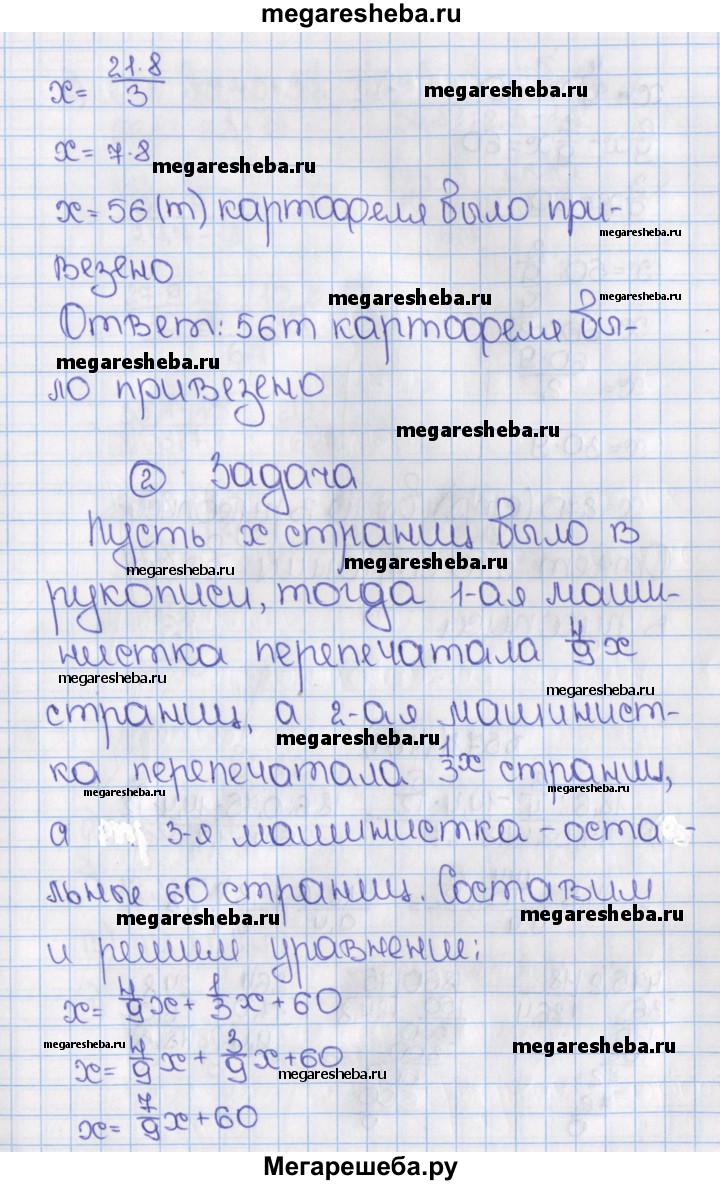 megaresheba.ru
x = 21·8/3
megaresheba.ru
x = 7·8
megaresheba.ru
x = 56 (т) картофеля было при-
megaresheba.ru
везено
megaresheba.ru megaresheba.ru
Ответ: 56 т картофеля бы-
megaresheba.ru
ло привезено
megaresheba.ru
2 Задача
Пусть x страниц было в
megaresheba.ru megaresheba.ru
рукописи, тогда 1-ая маши-
нистка перепечатала 4/9 x
megaresheba.ru megaresheba.ru
страниц, а 2-ая машинист-
megaresheba.ru
ка перепечатала 1/3 x страниц,
megaresheba.ru megaresheba.ru
а 3-я машинистка - оста-
льные 60 страниц. Составим
megaresheba.ru megaresheba.ru
и решим уравнение:
x = 4/9 x + 1/3 x + 60
megaresheba.ru megaresheba.ru
x = 4/9 x + 3/9 x + 60
megaresheba.ru
x = 7/9 x + 60
Мегарешеба.ру